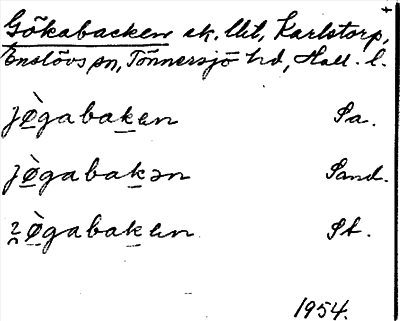 Gökabacken sk. lht, Karlstorp,
Enslövs sn, Tönnersjö hd, Hall. l.
jø̀gabaken Sa.
jø̀gabakən Sand.
ʒø̀gabaken St.
1954.